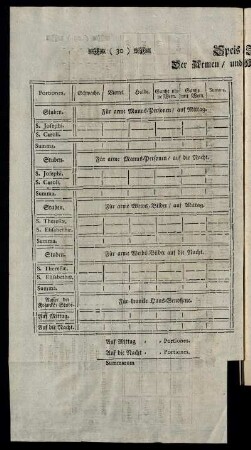 ( 30 )
Speis
Der Armen / und
Portionen. Schwache. Viertel. Halbe. Gantze ohne Wein. Gantze samt Wein. Summa.
Stuben. Für arme Manns-Personen / auf Mittag.
S. Josephi.
S. Caroli.
Summa.
Stuben. Für arme Manns-Personen / auf die Nacht.
S. Josephi.
S. Caroli.
Summa.
Stuben. Für arme Weibs-Bilder / auf Mittag.
S. Theresiæ.
S. Elisabethæ.
Summa.
Stuben. Für arme Weibs-Bilder auf die Nacht.
S. Theresiæ.
S. Elisabethæ.
Summa.
Für krancke Haus-Genossene.
Auf Mittag.
Auf die Nacht.
Auf Mittag , , Portionen.
Auf die Nacht , Portionen.
Summarum